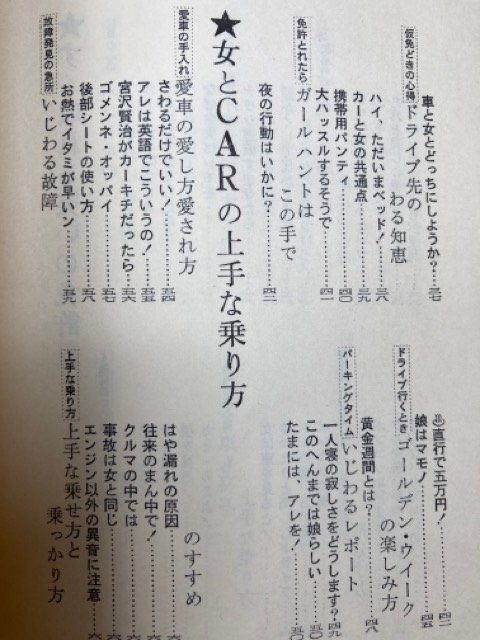 ★女とCARの上手な乗り方
車と女とどっちにしようか?…………三七
仮免どきの心得
ドライブ先の
わる知恵
ハイ、ただいまベッド!…………三八
カーと女の共通点…………三九
携帯用パンティ…………四〇
大ハッスルするそうで…………四一
免許とれたら
ガールハントは
この手で
夜の行動はいかに?…………四二
愛車の手入れ
愛車の愛し方愛され方
さわるだけでいい!…………五四
アレは英語でこういうの!…………五五
宮沢賢治がカーキチだったら…………五六
ゴメンネ・オッパイ…………五七
後部シートの使い方…………五八
お熱でイタミが早いン…………五九
故障発見の急所
いじわる故障
♨直行で五万円!…………四四
娘はマモノ…………四五
ドライブ行くとき
ゴールデン・ウイーク
の楽しみ方
黄金週間とは?…………四八
パーキングタイム
いじわるレポート
一人寝の寂しさをどうします?…四九
このへんまでは娘らしい
たまには、アレを!…………五〇
のすすめ
はや漏れの原因…………六
往来のまん中で!…………六
クルマの中では…………六
事故は女と同じ…………六
エンジン以外の異音に注意…………六
上手な乗り方
上手な乗せ方と
乗っかり方